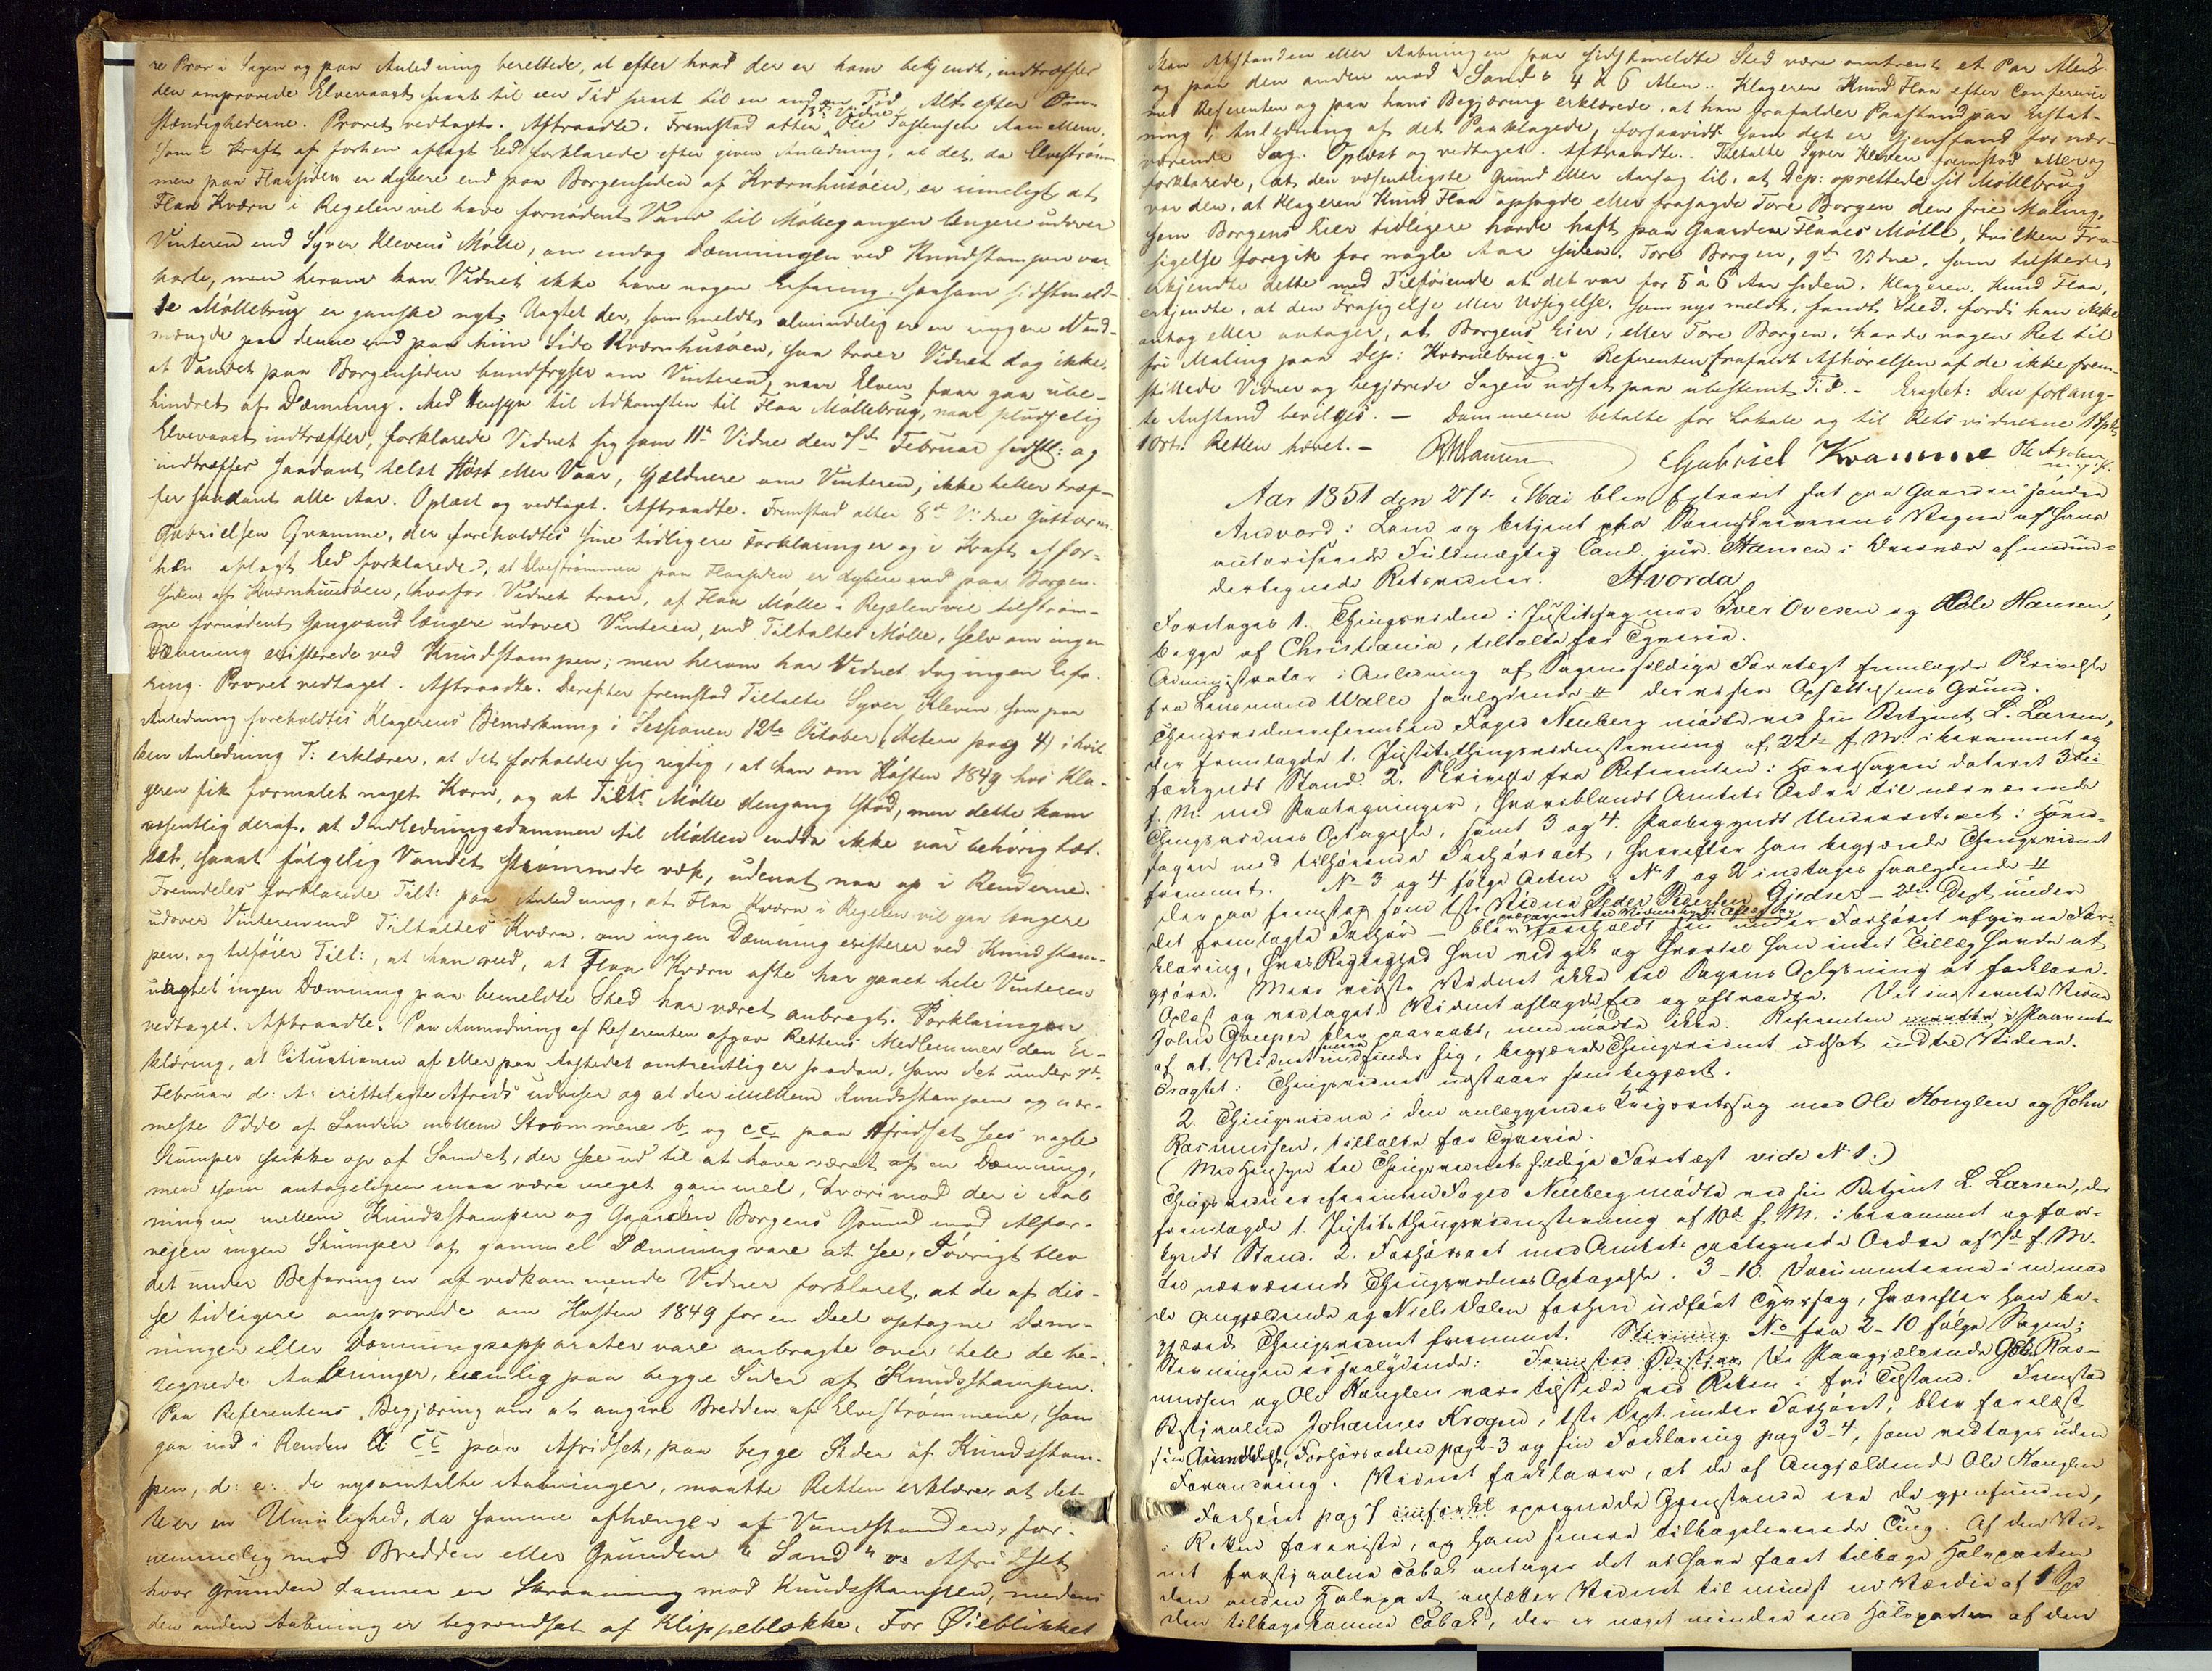 re Prov i Sagen og paa Anledning berettede, at efter hvad der er ham bekjendt, indtræffer
den omprovede Elvevaart snart til een Tid snart til en anden Tid, Alt efter Om-
stændighederne. Provet vedtaget. Aftraadte. Fremstod atter 11te Vidne Ole Tostensen Aamellem,
som i Kraft af forhen aflagt Eed forklarede efter given Anledning, at det, da Elvestrøm-
men paa Flaasiden er dybere end paa Borgensiden af Kværnhusøen, er rimeligt at
Flaa Kværn i Regelen vil have fornødent Vand til Møllegangen længere udover
Vinteren end Syver Klevens Mølle, om endog Dæmningen ved Knudsstampen var
borte, men herom kan Vidnet ikke have nogen Erfaring, saasom sidstmeld-
te Møllebrug er ganske nyt. Uagtet der, som meldt, almindelig er en ringere Vand-
mængde paa denne end paa hiin Side Kværnhusøen, saa troer Vidnet dog ikke,
at Vandet paa Borgensiden bundfryser om Vinteren, naar Elven faar gaa ube-
hindret af Dæmning. Med Hensyn til Adkomsten til Flaa Møllebrug, naar pludselig
Elvevaart indtræffer, forklarede Vidnet sig som 11te Vidne den 7de Februar sidstl: og
indtræffer saadant helst Høst eller Vaar, sjældnere om Vinteren, ikke heller træf-
fer saadant alle Aar. Oplæst og vedtaget. Aftraadte. Fremstod atter 8de Vidne Guttorm
Gabrielsen Qvamme, der foreholdtes sine tidligere Forklaringer og i Kraft af for-
hen aflagt Eed forklarede, at Elvestrømmen paa Flaasiden er dybere end paa Borgen-
siden af Kværnhusøen, hvorfor Vidnet troer, at Flaa Mølle i Regelen vil tilstrøm-
me fornødent Gangvand længere udover Vinteren, end Tiltaltes Mølle, selv om ingen
Dæmning existerede ved Knudsstampen; men herom har Vidnet dog ingen Erfa-
ring. Provet vedtaget. Aftraadte. Derefter fremstod Tiltalte Syver Kleven som paa
Anledning foreholdtes Klagerens Bemærkning i Sessionen 12te October (Acten pag 4) i hvil-
ken Anledning T: erklærer, at det forholder sig rigtig, at han om Høsten 1849 hos Kla-
geren fik formalet noget Korn, og at Tilts Mølle dengang stod, men dette kom
væsentlig deraf, at Indledningsdammen til Møllen endda ikke var behørig tæt-
tet, saaat følgelig Vandet strømmede væk, uden at naa op i Renderne.
Fremdeles forklarede Tilt: paa Anledning, at Flaa Kværn i Regelen vil gaa længere
udover Vinteren end Tiltaltes Kværn, om ingen Dæmning existerer ved Knudsstam-
pen, og tilføier Tilt:, at han veed, at Flaa Kværn ofte har gaaet hele Vinteren
uagtet ingen Dæmning paa bemeldte Sted har været anbragt. Forklaringen
vedtaget. Aftraadte. Paa Anmodning af Referenten afgav Rettens Medlemmer den Er-
klæring, at Situationen af eller paa Aastedet omtrentlig er saadan, som det under 7de
Februar d: A: irettelagte Afrids udviser og at der imellem Knudsstampen og nær-
meste Odde af Sanden mellem Strømmene b og cc paa Afridset sees nogle
Stumper stikke op af Sandet, der see ud til at have været af en Dæmning,
men som antageligen maa være meget gammel, hvorimod der i Aab-
ningen mellem Knudsstampen og Gaarden Borgens Grund mod Alfar-
vejen ingen Stumper af gammel Dæmning vare at see. Iøvrigt blev
det under Befaringen af vedkommende Vidner forklaret, at de af dis-
se tidligere omprovede om Høsten 1849 for en Deel optagne Dæm-
ninger eller Dæmningsapparater vare anbragte over hele de be-
tegnede Aabninger, nemlig paa begge Sider af Knudsstampen.
Paa Referentens Begjæring om at angive Bredden af Elvestrømmene, som
gaa ind i Renden cc paa Afridset, paa begge Sider af Knudsstam-
pen, d: e: de nysomtalte Aabninger, maatte Retten erklære at det-
te er en Umulighed, da samme afhænger af Vandstanden, for-
nemmelig mod Bredden eller Grunden "Sand" paa Afridset
hvor Grunden danner en Skraaning mod Knudsstampen, medens
den anden Aabning er begrændset af Klippeblokke. For Øieblikket
kan Afstanden eller Aabningen paa sidstmeldte Sted være omtrent et Par Alen
og paa den anden mod "Sand" 4 à 6 Alen. Klageren Knud Flaa efter Conference
med Referenten og paa hans Begjæring erklærede, at han frafalder Paastand paa Erstat-
ning i Anledning af det Paaklagede, forsaavidt som det er Gjenstand for nær-
værende Sag. Oplæst og vedtaget. Aftraadte. Tiltalte Syver Kleven fremstod atter og
forklarede, at den væsentligste Grund eller Aarsag til, at Dep: oprettede sit Møllebrug
var den, at Klageren Knud Flaa opsagde eller frasagde Tore Borgen den frie Maling,
som Borgens Eier tidligere havde haft paa Gaarden Flaaes Mølle, hvilken Fra-
sigelse foregik for nogle Aar siden. Tore Borgen, 9de Vidne, som tilstede,
erkjendte dette med Tilføiende at det var for 5 à 6 Aar siden. Klageren, Knud Flaa,
erkjendte, at den Frasigelse eller Udsigelse, som nys meldt, fandt Sted, fordi han ikke
antog eller antager, at Borgens Eier, eller Tore Borgen, havde nogen Ret til
fri Maling paa Dep: Kværnebrug. Referenten frafaldt Afhørelsen af de ikke frem-
stillede Vidner og begjærede Sagen udsat paa ubestemt Tid. – Eragtet: Den forlang-
te Anstand bevilges. – Dommeren betalte for Lokale og til Retsvidnerne 1 Spd
1 ort. Retten hævet. –
Gabriel Kvamme
Aar 1851 den 27de Mai blev Extraret sat paa Gaarden søndre
Andvord i Lom og betjent paa Sorenskriverens Vegne af hans
autoriserede Fuldmægtig Cand. jur. Hansen i Overvær af under-
tegnede Retsvidner. Hvorda
Foretoges 1. Thingsvidne i Justitssag mod Iver Ovesen og Ole Hansen,
begge af Christiania, tiltalte for Tyveri.
Administrator i Anledning af Sagens sildige Foretagt fremlagde Skrivelse
fra Lensmand Walle saalydende # der viser Opsættelsens Grund.
Thingsvidnereferenten Foged Neuberg mødte ved sin Betjent L. Larsen,
der fremlagde 1. Justitsthingsvidnestevning af 22de f. M. i beram̅et og
forkyndt Stand. 2. Skrivelse fra Referenten i Hovedsagen dateret 3die
f. M. med Paategninger, hvoriblandt Amtets Ordre til nærværende
Thingsvidnes Optagelse, samt 3 og 4. Paabegyndt Underretsact i Hoved-
sagen med tilhørende Forhørsact, hvorefter han begjærede Thingsvidnet
fremmet. No 3 og 4 følge Acten & No 1 og 2 indtages saalydende #
Derpaa fremstod som 1ste Vidne Peder Pedersen Gjedser – 2den Dept. under
det fremlagte Forhør – blev foreholdt sin under Forhøret afgivne For-
klaring, hvis Rigtighed han vedgik og hvortil han intet Tillæg havde at
gjøre. Mere vidste Vidnet ikke til Sagens Oplysning at forklare.
Oplæst og vedtaget. Vidnet aflagde Eed og aftraadte. Det indstevnte Vidne
John blev paaraabt, men mødte ikke. Referenten i Paavente
af at Vidnet indfinder sig, begjærede Thingsvidnet udsat indtil Videre.
Eragtet: Thingsvidnet udstaaer som begjært.
2. Thingsvidne i den anlæggendes Justitssag mod Ole Konglen og John
Rasmussen, tiltalte for Tyveri.
(Med Hensyn til Thingsvidnets sildige Foretagt vide No 1.)
Thingsvidnereferenten Foged Neuberg mødte ved sin Betjent L. Larsen, der
fremlagde 1. Justitsthingsvidnestevning af 10de f. M. i beram̅et og for-
kyndt Stand. 2. Forhørsact med Amtets paategnede Ordre af 7de f. M.
til nærværende Thingsvidnes Optagelse. 3–10. Documenterne i en mod
de Angjældende og Niels Dalen forhen udført Tyvssag, hvorefter han be-
gjærede Thingsvidnet fremmet. No fra 2–10 følge Sagen;
Stevningen er saalydende: De Paagjældende John Ras-
mussen og Ole Konglen vare tilstede ved Retten i fri Tilstand. Fremstod
Bestjaalne Johannes Krogen, 1ste Dept. under Forhøret, blev forelæst
sin Anmeldelse, Forhørsacten pag 2–3 og sin Forklaring pag 3–4, som vedtoges uden
Forandring. Vidnet forklarer, at de af Angjældende Ole Konglen
Forhøret pag 7 anførte opregnede Gjenstande ere de gjenfundne,
i Retten foreviste, og ham senere tilbageleverede Ting. Af den Vid-
net frastjaalne Tobak antages det at have faaet tilbage Halvparten
den anden Halvpart ansætter Vidnet til mindst en Værdie af 1 Spd
den tilbagekomne Tobak, der er noget mindre end Halvparten af den